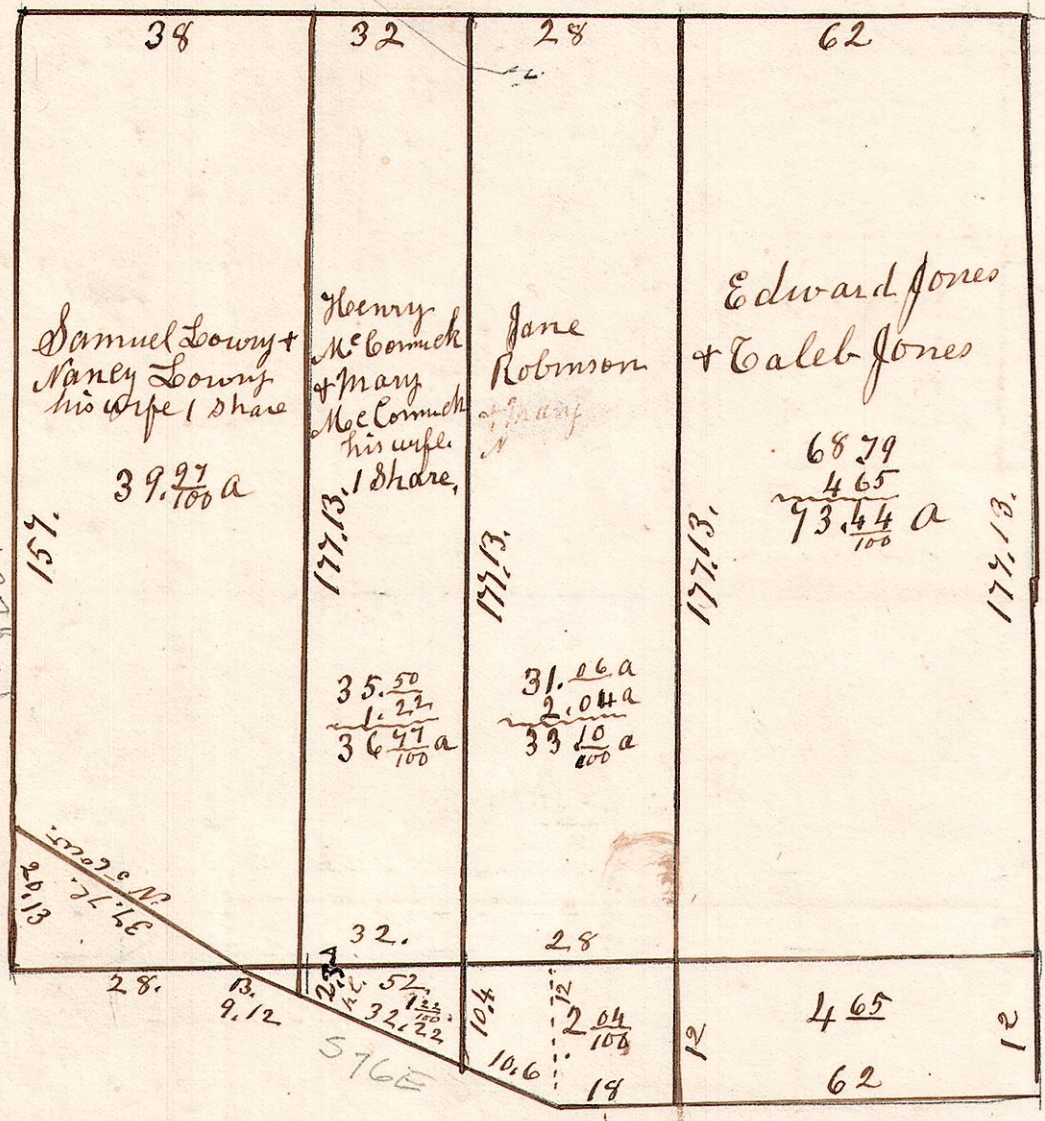 38
32
28
62
Samuel Lowry +
Nancy Lowry
his wife 1 Share
39.97/100 a
157.
Henry
McCormick
+ Mary
McCormick
his wife.
1 Share,
177.13.
35.50
1.22
36 77/100 a
Jane
Robinson
+ Mary
N
177.13.
31.06 a
2.04 a
33 10/100 a
Edward Jones
+ Caleb Jones
68 79
4 65
73.44/100 a
177.13.
177.13.
20,13
37.72.
32.
28
28.
B.
9.12
52.
1 22/100.
32.22
S76E
10.4
10.6
12
2 04/100
18
12
4 65
62
12